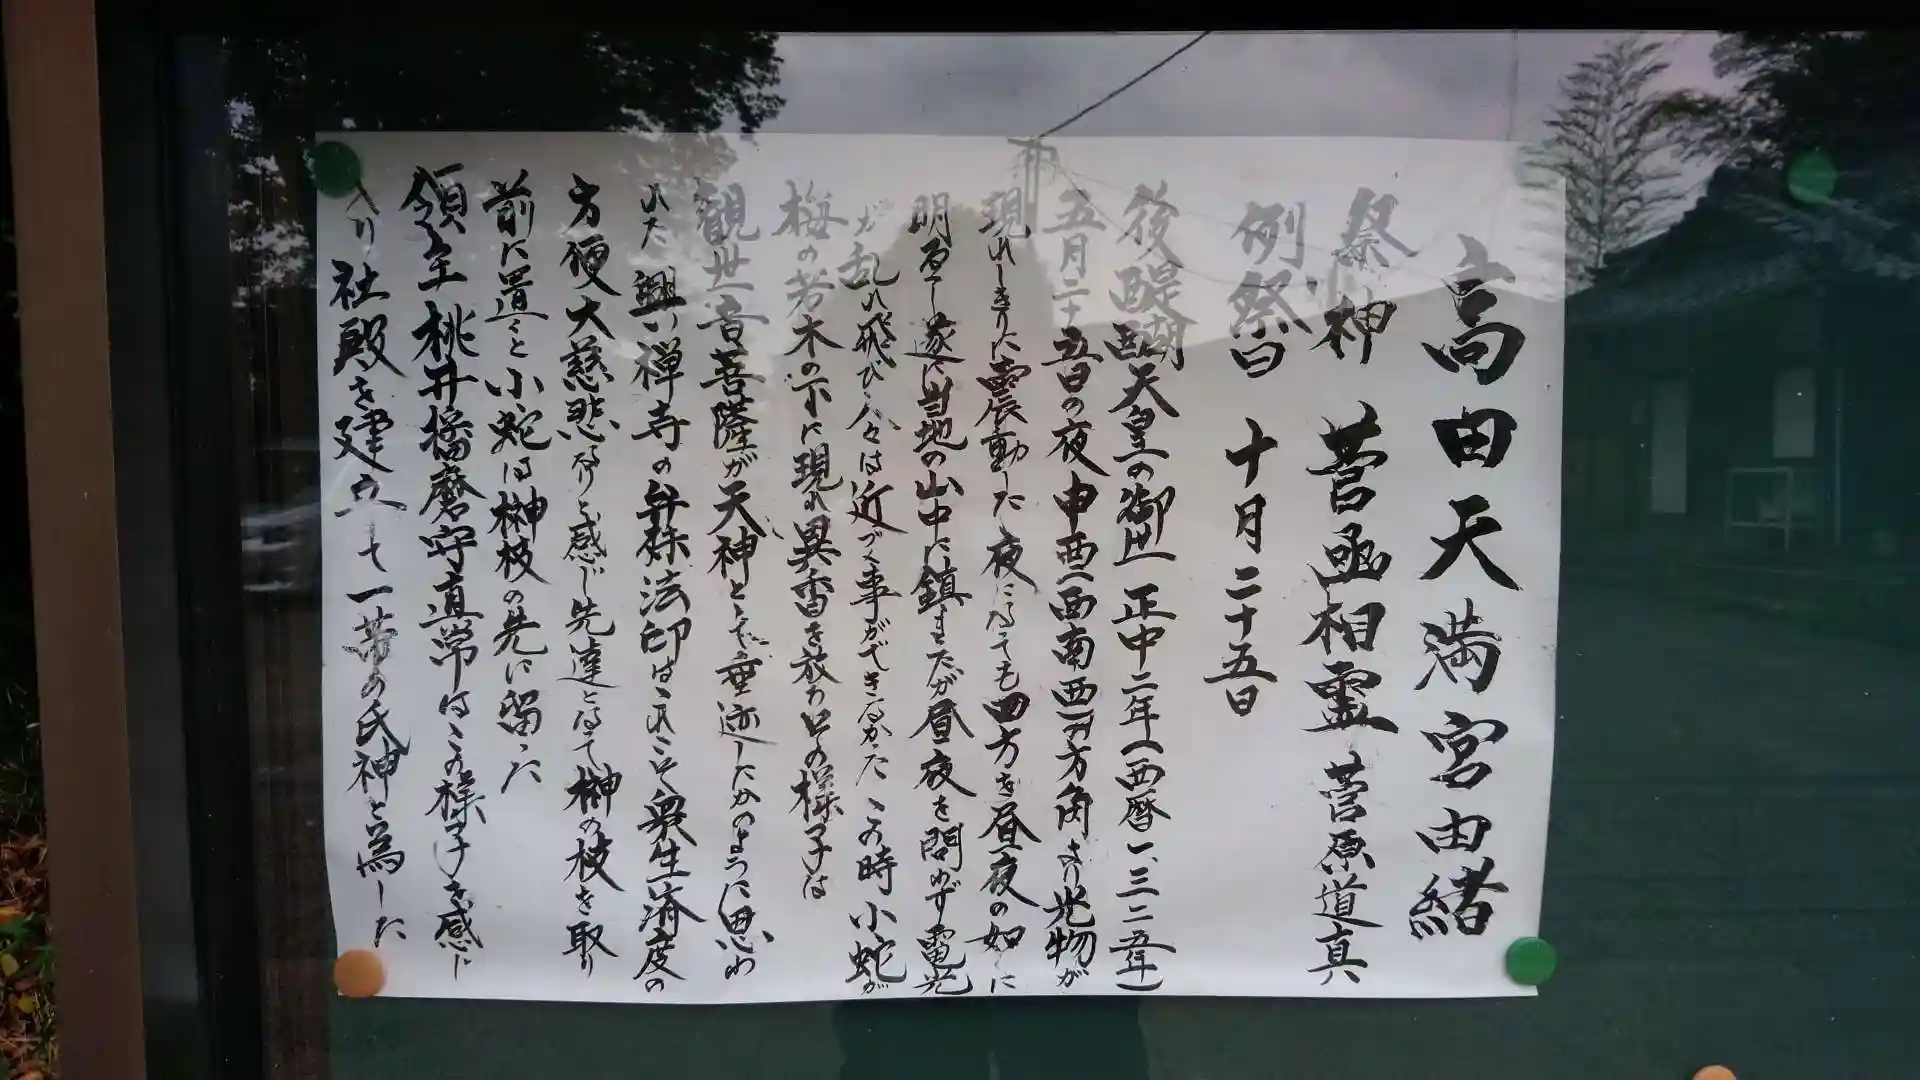 高田天満宮由緒
祭神 菅丞相霊 菅原道真
例祭日 十月二十五日
後醍醐天皇の御世 正中二年(西暦一、三二五年)
五月二十五日の夜申酉(西南西)方角より光物が
現れしきりに震動した 夜になっても四方を昼夜の如くに
明るし遂に当地の山中に鎮まだが昼夜を問わず電光
が乱れ飛び人々は近づく事ができなかった この時小蛇が
梅の若木の下に現れ異香を放ち この様子は
観世音菩薩が天神となって垂迹したかのように思わ
れた 興禅寺の弁保法印はこれこそ衆生済度の
方便大慈悲なりと感じ先達となって榊の枝を取り
前に置くと小蛇は榊枝の先に留った
領主桃井播磨守直常はこの様子を感じ
入り社殿を建立して一帯の氏神と為した